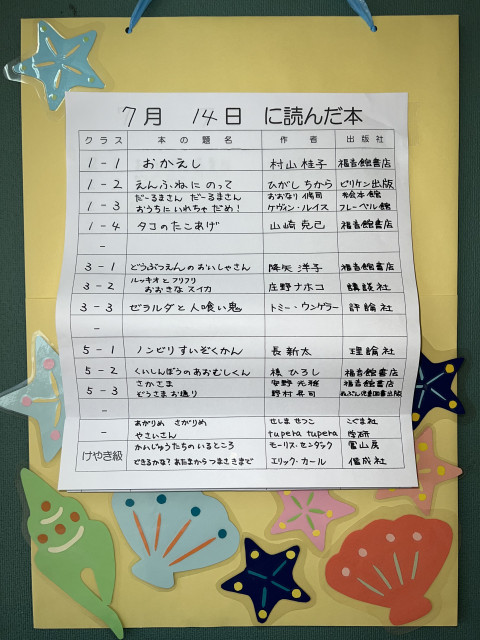 7月 14日 に読んだ本
クラス 本の題名 作者 出版社
1-1 おかえし 村山桂子 福音館書店
1-2 えんふねにのって ひがしちから ビリケン出版
だーるまさん だーるまさん おおなり修司 絵本館
1-3 おうちにいれちゃだめ! ケヴィン・ルイス フレーベル館
1-4 タコのたこあげ 山崎克己 福音館書店
-
3-1 どうぶつえんのおいしゃさん 降矢洋子 福音館書店
ルッキオとフリフリ
3-2 おおきなスイカ 庄野ナホコ 講談社
3-3 ゼラルダと人喰い鬼 トミー・ウンゲラー 評論社
-
5-1 ノンビリすいぞくかん 長新太 理論社
5-2 くいしんぼうのあおむしくん 槇ひろし 福音館書店
さかさま 安野光雅 福音館書店
5-3 ぞうさまお通り 野村昇司
あがりめ さがりめ せしませつこ こぐま社
- やさいさん tupera tupera 学研
かいじゅうたちのいるところ モーリス・センダック 冨山房
けやき級 できるかな?あたまからつまさきまで エリック・カール 偕成社